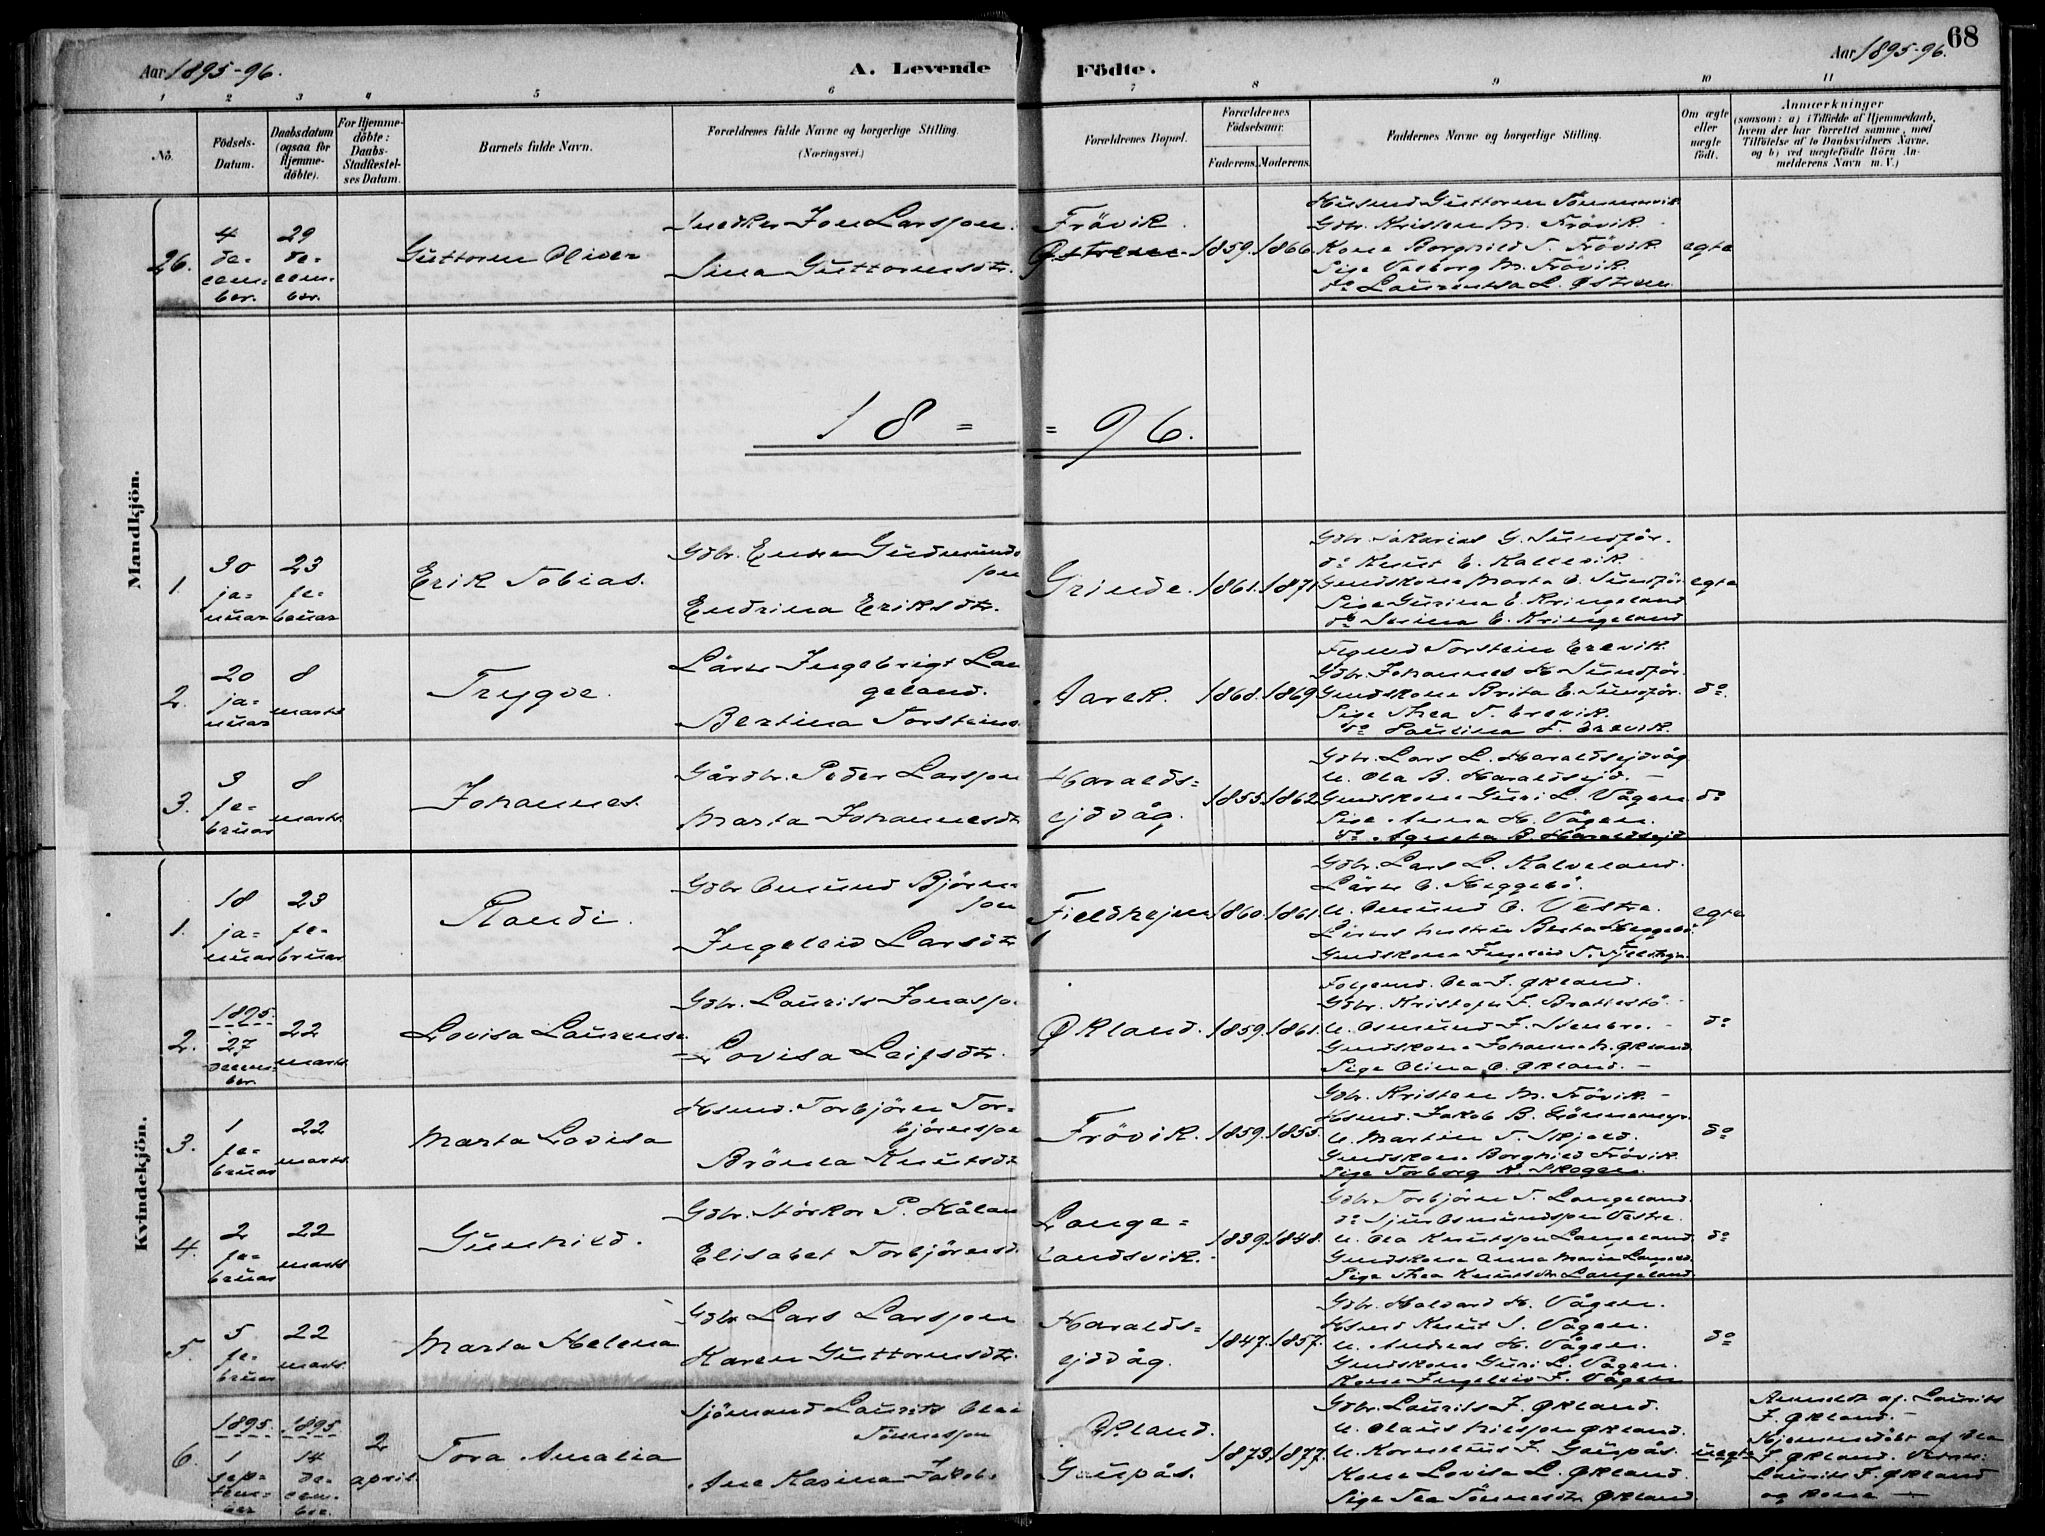 68
Aar 1895-96.
A. Levende
Födte.
Aar 1895-96.
1 2 3 4 5 6 7 8 9 10 11
No.
Födsels-Datum.
Daabsdatum (ogsaa for Hjemme-döbte).
For Hjemme-döbte: Daabs-Stadfæstel-ses Datum.
Barnets fulde Navn.
Forældrenes fulde Navne og borgerlige Stilling.
(Næringsvei.)
Forældrenes Bopæl.
Forældrenes Födselsaar.
Faderens. Moderens.
Faddernes Navne og borgerlige Stilling.
Om ægte eller uægte født.
Anmærkninger
(saasom: a) i Tilfælde af Hjemmedaab,
hvem der har forrettet samme, med
Tilföielse af to Daabsvidners Navne.
og b) ved uægtefödte Börn An-
melderens Navn m. V.)
Mandkjön.
26.
4 de-cem-ber.
29 de-cem-ber.
Guttorm Oliver
Snedker Jon Larsson.
Sina Guttormsdtr.
Frövik.
Östrem.
1859. 1866.
Husmd Guttorm
Gdbr. Kristen M. Frövik
Kone Borghild T. Frövik
Pige Valborg M. Frövik.
do Laurentsa L. Östrem
egte
18 = = 96.
1.
30 ja-nuar
23 fe-bruar
Erik Tobias.
Gdbr. Endre Gudmunds
son
Endrina Eriksdtr.
Grinde.
1861. 1871.
Gdbr. Sakarias G. Sundför.
do Knut E. Kallevik.
Gmdskone Marta E. Sundför
Pige Gurina E. Kringeland
do Serina E. Kringeland
egte
2.
20 ja-nuar
8 marts
Trygve.
Lärer Ingebrigt Lan
geland.
Bertina Torsteins
Aarek.
1868. 1869
Torstein Erevik.
Gdbr. Johannes H. Sundför.
Gmdskone Brita E. Sundför.
Pige Thea T. Erevik.
do Paulina T. Erevik.
do.
3.
3 fe-bruar
8 marts.
Johannes.
Gårdbr. Peder Larsson
Marta Johannesdt
Haralds=
ejdvåg.
1855. 1862
Gdbr. Lars L. Haraldsejdvåg
U. Ola B. Haraldsejd. -
Gmdskone Guri L. Vågen.
Pige Anna H. Vågen.
do Agneta B. Haraldsejd
do
Kvindekjön.
1.
18 ja-nuar
23 fe-bruar
Randi.
Gdbr Omund Bjørn=
son
Ingeleid Larsdtr
Fjeldhejm
1860. 1861.
Gdbr. Lars L. Kalveland.
Lärer O. Heggebö.
U. Omund O. Vestre.
Lärers hustru Berta Heggebö.
Gmdskone Ingeleid T. Fjeldhejm
egte
2.
1895. 27 decem-ber
22 marts
Lovisa Laurense
Gdbr. Laurits Jonasso
Lovisa Leifsdtr.
Økland.
1859. 1861.
Ola J. Økland.
Gdbr. Kristofer J. Brattestö -
U. Osmund J. Stenbro. -
Gmdskone Johanna N. Økland
Pige Olina O. Økland. -
do
3.
1 fe-bruar
22 marts
Marta Lovisa
Husmd. Torbjörn Tor=
björnson
Brönla Knutsdt
Frövik.
1859. 1855.
Gdbr. Kristen M. Frövik -
Husmd. Jakob B. Grönnemyr
U. Martin T. Skjold.
Gmdskone Borghild Frövik.
Pige Torborg K. Skogen.
do
4.
2 fe-bruar
22 marts
Gunhild.
Gdbr. Störkor P. Hålan
Elisabet Torbjörnsd
Lange=
landsvik.
1839. 1848.
Gdbr. Torbjörn T. Langeland.
do Sjur Osmundson Vestre.
U. Ola Knutson Langeland
Gmdskone Anna Maria Langeld.
Pige Thea Knutsdtr Langeland
do
5.
5 fe-bruar
22 marts
Marta Helena
Gdbr Lars Larsson
Karen Guttormsdtr.
Haralds=
ejdvåg.
1847. 1857.
Gdbr. Halvard H. Vågen.
Husmd Knut S. Vågen.
U. Andreas H. Vågen.
Gmdskone Guri L. Vågen.
Kone Ingeleid J. Vågen
do
6.
1895. 1 sep-tem-ber
1895 14 de-cem-ber.
2 april.
Tora Amalia
Sjömand Laurits Olai
Tönneson
Ane Karina Jakobs
Økland.
Gaupås.
1873. 1877.
Gdbr. Laurits J. Økland.
U. Claus Nilsson Økland.
U. Kornelius J. Gaupås.
Kone Lovisa L. Økland.
Pige Tea Tönnesdtr Økland
uegte
Anmeldt af Laurits
J. Økland. -
Hjemmedöbt af Ola
J. Økland. Vidner:
Laurits J. Økland
og kone -